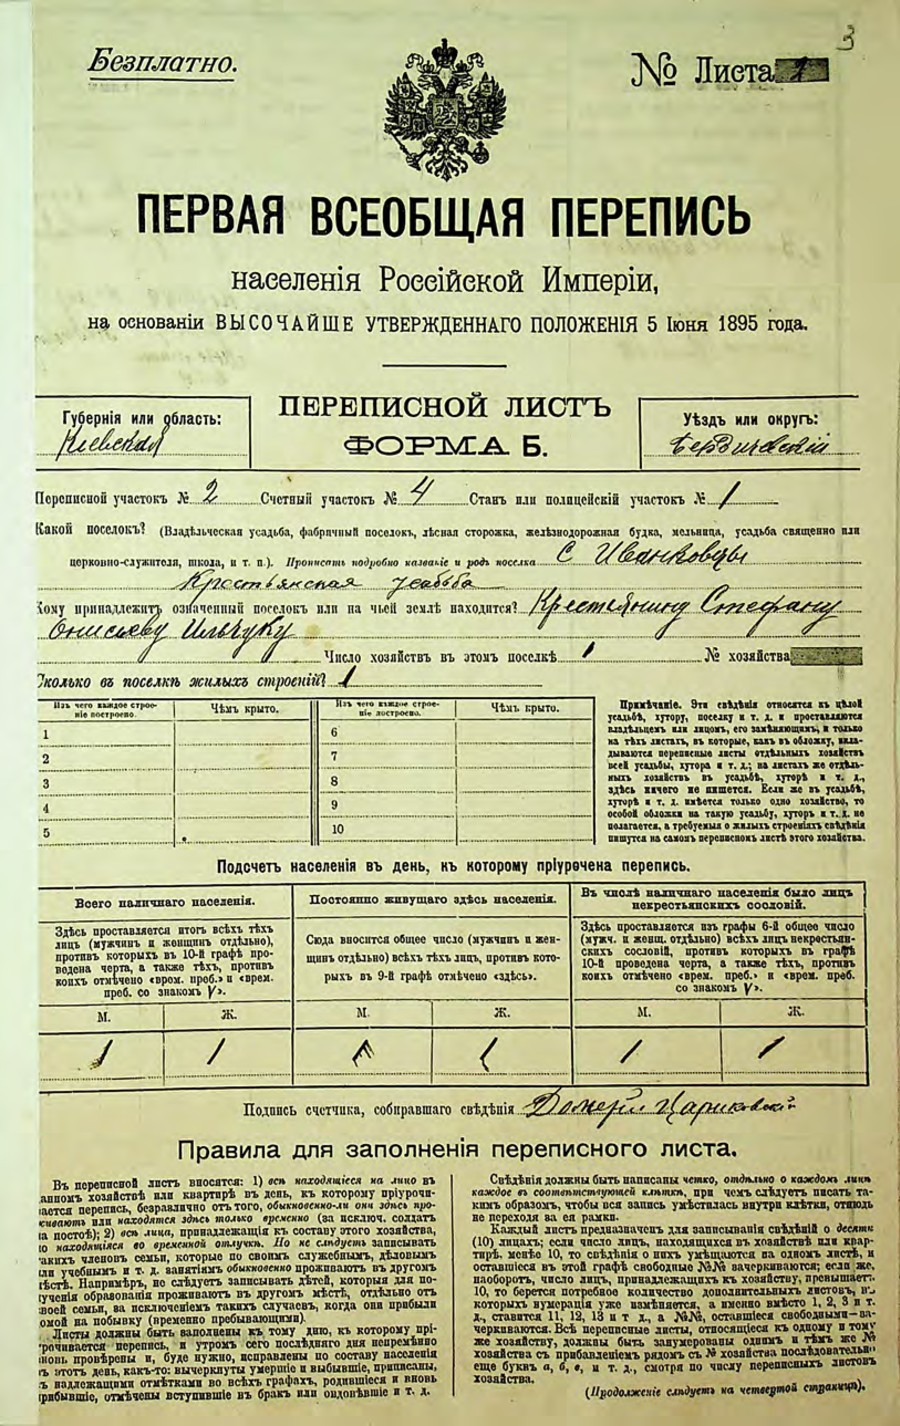 3
Безплатно.
№ Листа 1
ПЕРВАЯ ВСЕОБЩАЯ ПЕРЕПИСЬ
населенія Россійской Имперіи,
на основаніи ВЫСОЧАЙШЕ УТВЕРЖДЕННАГО ПОЛОЖЕНІЯ 5 Іюня 1895 года.
Губернія или область:
Кіевская
ПЕРЕПИСНОЙ ЛИСТЪ
ФОРМА Б.
Уѣздъ или округъ:
Бердичевскій
Переписной участокъ № 2 Счетный участокъ № 4 Станъ или полицейскій участокъ № 1
Какой поселокъ? (Владѣльческая усадьба, фабричный поселокъ, лѣсная сторожка, желѣзнодорожная будка, мельница, усадьба священно или
церковно-служителя, школа, и т. п.). Прописать подробно названіе и родъ поселка С Иванковцы
Крестьянская усадьба
Кому принадлежитъ означенный поселокъ или на чьей землѣ находится? Крестянину Стефану
Онисіеву Ильчуку
Число хозяйствъ в этомъ поселкѣ 1 № хозяйства
Сколько въ поселкѣ жилыхъ строеній? 1
Изъ чего каждое строе-
ніе построено.
Чѣмъ крыто.
Изъ чего каждое строе-
ніе построено.
Чѣмъ крыто.
1
2
3
4
5
6
7
8
9
10
Примѣчаніе. Эти свѣдѣнія относятся къ цѣлой
усадьбѣ, хутору, поселку и т. д. и проставляются
владѣльцемъ или лицомъ, его замѣняющимъ, и только
на тѣхъ листахъ, въ которые, какъ въ обложку, вкла-
дываются переписные листы отдѣльныхъ хозяйствъ
всей усадьбы, хутора и т. д.; на листахъ же отдѣль-
ныхъ хозяйствъ въ усадьбѣ, хуторѣ и т. д.,
здѣсь ничего не пишется. Если же въ усадьбѣ,
хуторѣ и т. д. имѣется только одно хозяйство, то
особой обложки на такую усадьбу, хуторъ и т. д. не
полагается, а требуемыя о жилыхъ строеніяхъ свѣдѣнія
пишутся на самомъ переписномъ листѣ этого хозяйства.
Подсчетъ населенія въ день, къ которому пріурочена перепись.
Всего наличнаго населенія.
Здѣсь проставляется итогъ всѣхъ тѣхъ
лицъ (мужчинъ и женщинъ отдѣльно),
противъ которыхъ въ 10-й графѣ про-
ведена черта, а также тѣхъ, противъ
коихъ отмѣчено «врем. преб.» и «врем.
преб. со знакомъ V».
М. Ж.
1 1
Постоянно живущаго здѣсь населенія.
Сюда вносится общее число (мужчинъ и жен-
щинъ отдѣльно) всѣхъ тѣхъ лицъ, противъ кото-
рыхъ въ 9-й графѣ отмѣчено «здѣсь».
М. Ж.
1 1
Въ числѣ наличнаго населенія было лицъ
некрестьянскихъ сословій.
Здѣсь проставляется изъ графы 6-й общее число
(мужч. и женщ. отдѣльно) всѣхъ лицъ некрестьян-
скихъ сословій, противъ которыхъ въ графѣ
10-й проведена черта, а также тѣхъ, противъ
коихъ отмѣчено «врем. преб.» и «врем. преб.
со знакомъ V».
М. Ж.
1 1
Подпись счетчика, собиравшаго свѣдѣнія
Правила для заполненія переписного листа.
Въ переписной листъ вносятся: 1) всѣ находящіеся на лицо въ
анномъ хозяйствѣ или квартирѣ въ день, къ которому пріурочи-
вается перепись, безразлично отъ того, обыкновенно-ли они здѣсь про-
живаютъ или находятся здѣсь только временно (за исключ. солдатъ
на постоѣ); 2) всѣ лица, принадлежащія къ составу этого хозяйства,
но находящіяся во временной отлучкѣ. Но не слѣдуетъ записывать
такихъ членовъ семьи, которые по своимъ служебнымъ, дѣловымъ
или учебнымъ и т. д. занятіямъ обыкновенно проживаютъ въ другомъ
мѣстѣ. Напримѣръ, не слѣдуетъ записывать дѣтей, которыя для по-
лученія образованія проживаютъ въ другомъ мѣстѣ, отдѣльно отъ
своей семьи, за исключеніемъ такихъ случаевъ, когда они прибыли
домой на побывку (временно пребывающими).
Листы должны быть заполнены къ тому дню, къ которому прі-
урочивается перепись, и утромъ сего послѣдняго дня непремѣнно
вновь провѣрены и, буде нужно, исправлены по составу населенія
въ этотъ день, какъ-то: вычеркнуты умершіе и выбывшіе, приписаны,
съ надлежащими отмѣтками во всѣхъ графахъ, родившіеся и вновь
прибывшіе, отмѣчены вступившіе въ бракъ или овдовѣвшіе и т. д.
Свѣдѣнія должны быть написаны четко, отдѣльно о каждомъ лицѣ
каждое въ соответствующей клѣткѣ, при чемъ слѣдуетъ писать та-
кимъ образомъ, чтобы вся запись умѣстилась внутри клѣтки, отнюдь
не переходя за ея рамки.
Каждый листъ предназначенъ для записыванія свѣдѣній о десяти
(10) лицахъ; если число лицъ, находящихся въ хозяйствѣ или квар-
тирѣ, менѣе 10, то свѣдѣнія о нихъ умѣщаются на одномъ листѣ, и
оставшіеся в этой графѣ свободные №№ зачеркиваются; если же,
наоборотъ, число лицъ, принадлежащихъ къ хозяйству, превышаетъ
10, то берется потребное количество дополнительныхъ листовъ, въ
которыхъ нумерація уже измѣняется, а именно вмѣсто 1, 2, 3 и т.
д., ставится 11, 12, 13 и т д., а №№, оставшіеся свободными—за-
черкиваются. Всѣ переписные листы, относящіеся къ одному и тому
же хозяйству, должны быть занумерованы однимъ и тѣмъ же №
хозяйства съ прибавленіемъ рядомъ съ № хозяйства послѣдовательно
еще буквъ а, б, в, и т. д., смотря по числу переписныхъ листовъ
хозяйства.
(Продолженіе слѣдуетъ на четвертой страницѣ).